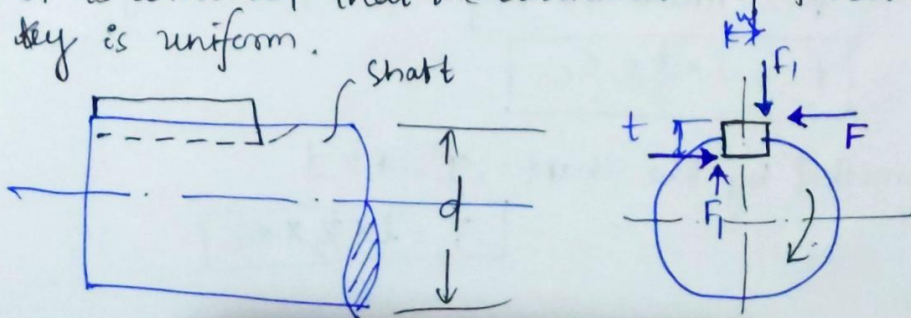 key is uniform.
shaft
d
w
F1
t
F
F1